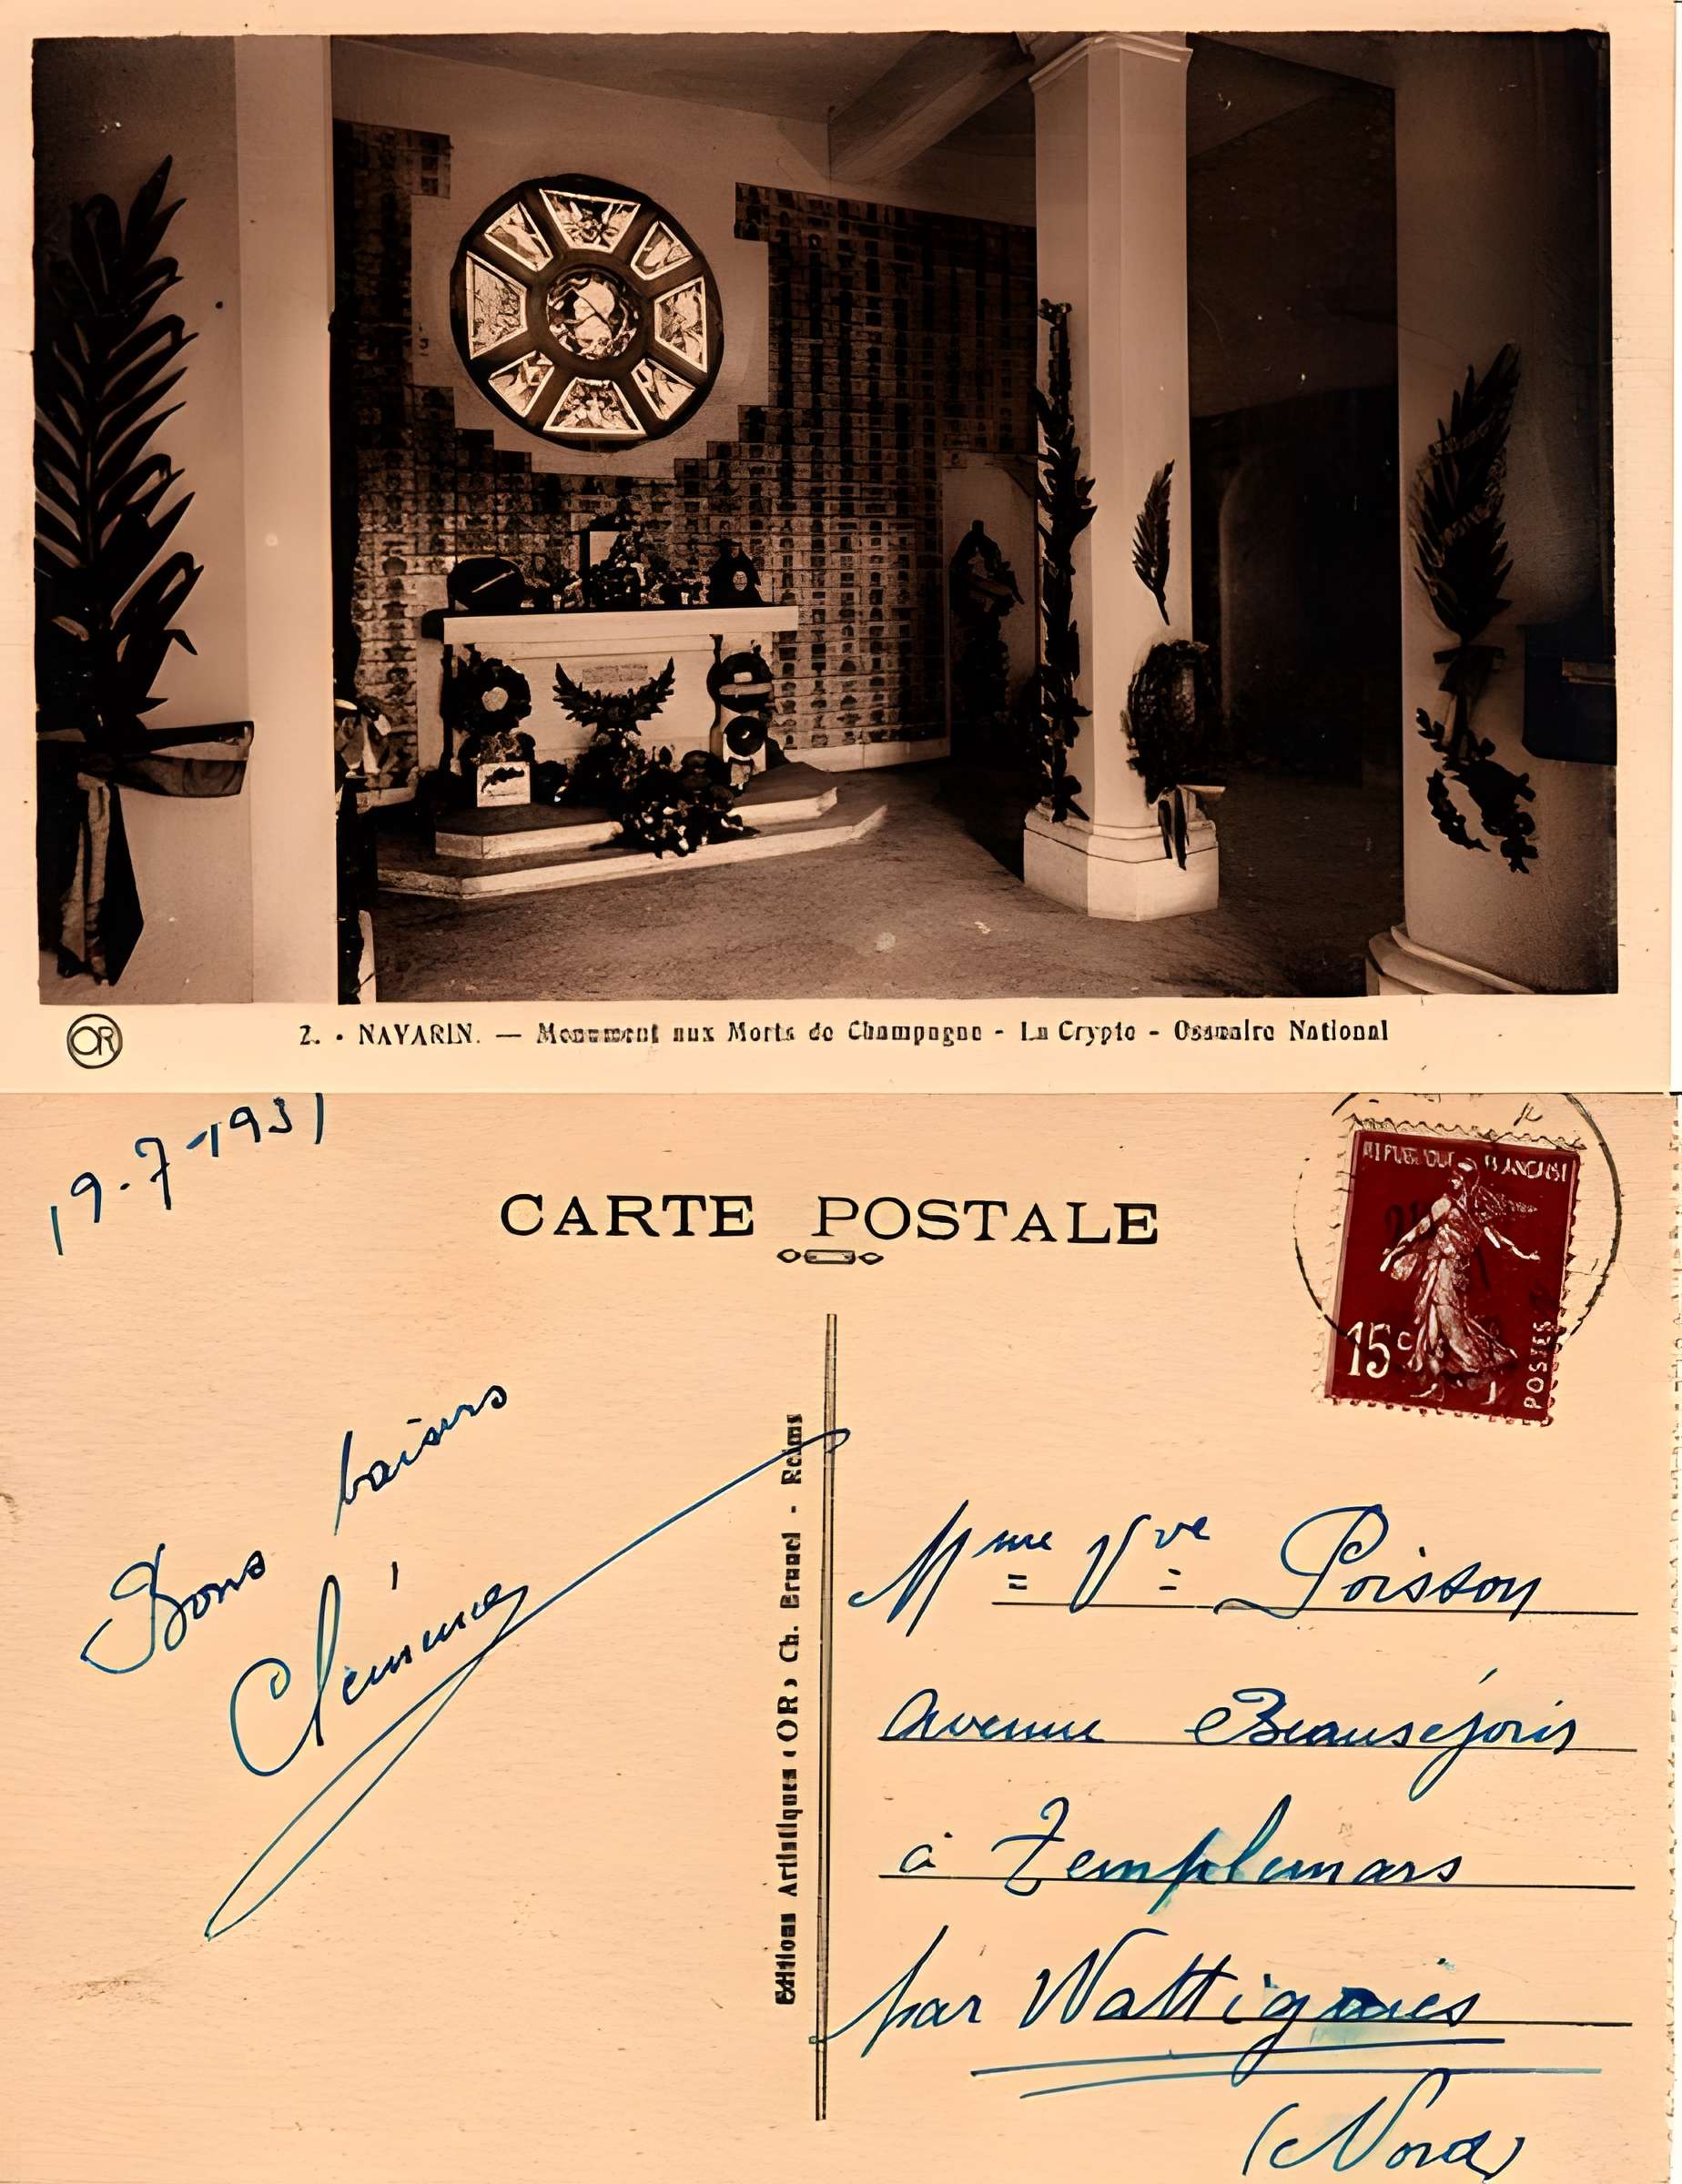 OR 2. - NAVARIN. — Monument aux Morts de Champagne - La Crypte - Ossuaire National
19-7-1931
CARTE POSTALE
REPUBLIQUE FRANCAISE
15c
POSTES
Bons baisers
Editions Artistiques "OR" Ch. Brunel - Reims
Mme Vve Poisson
Avenue Beauséjour
à Templemars
par Wattignies
(Nord)